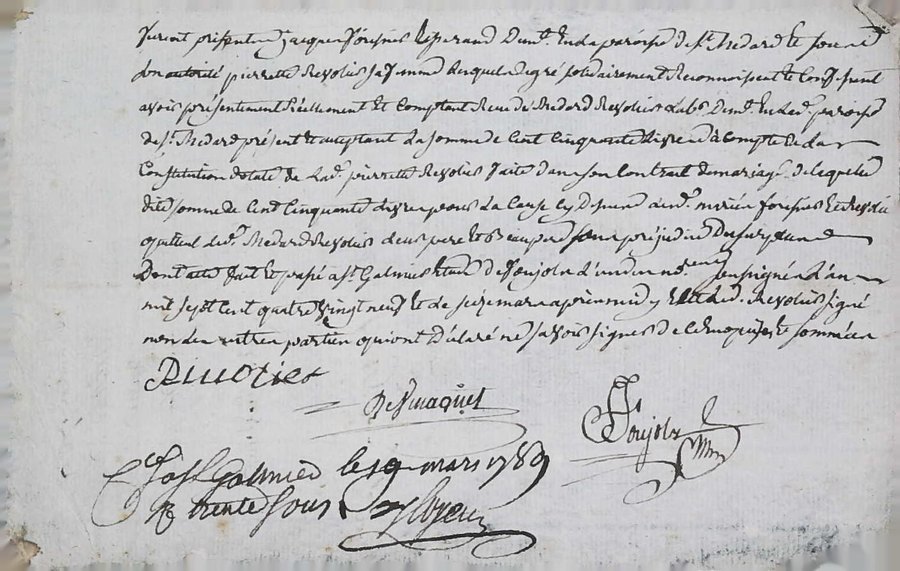 furent présents Jacques fousnes tisserand demt en la paroisse de st Medard et sous
son autorité pierrette Revolier sa femme lesquels de gré solidairement Reconnoissent et Confessent
avoir présentement Réellement et Comptant Reçu de Medard Revolier labr demt en lad. paroisse
de st Medard présent et acceptant La somme de Cent Cinquante Livres à Compte de la
Constitution dotale de Lad. pierrette Revolier faite dans son Contrat de mariage de laquelle
dite somme de Cent Cinquante Livres pour La Cause Cy dessus mariés fousnes et Revolier
quittent led. Medard Revolier leur pere et Beaupere sans préjudice du surplus
Dont acte fait et passé a st Galmier Etude de Soujols l'un des nores soussignés L'an
mil sept Cent quatre vingt neuf et le seize mars après midy Led. Revolier signé
non les autres parties qui ont déclaré ne savoir signer de ce enquises et sommées
Revolier
Desmaquet
Soujols
Cé a st Galmier le 19 mars 1789
R trente sous